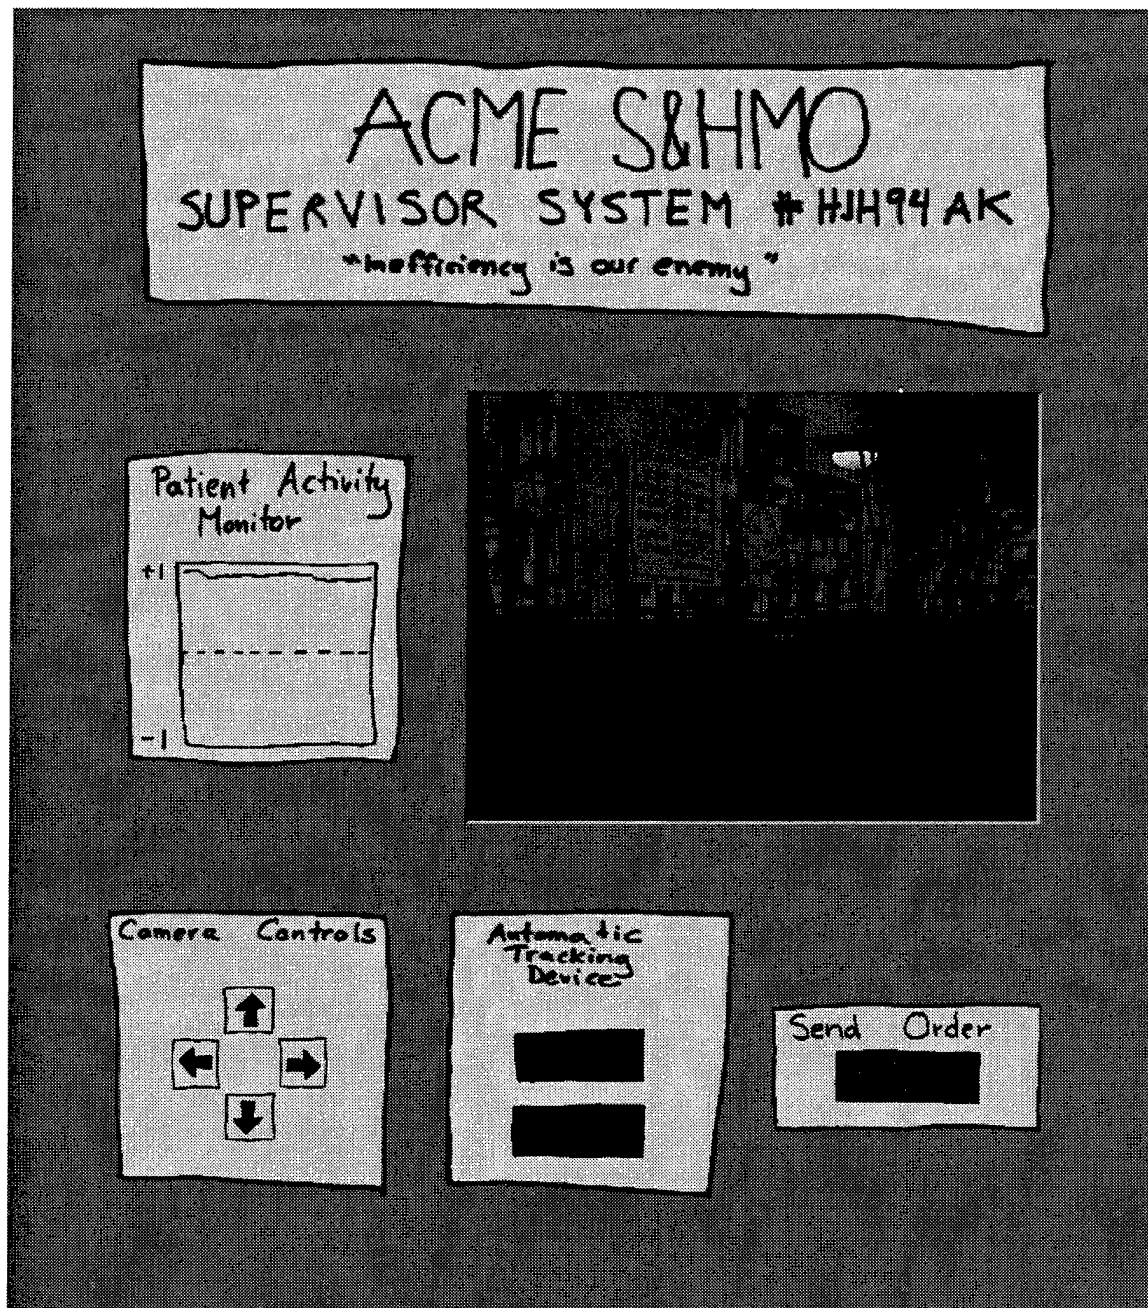 ACME S&HMO
SUPERVISOR SYSTEM #HJH94AK
"Inefficiency is our enemy"
Patient Activity
Monitor
+1
-1
Camera Controls
Automatic
Tracking
Device
Send Order